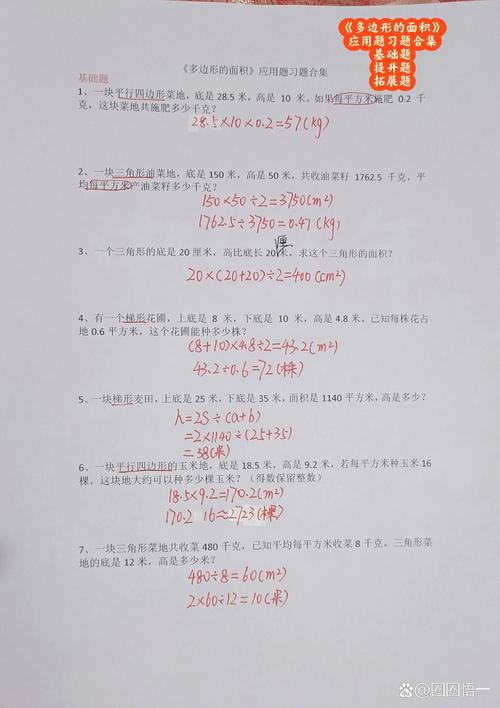 《多边形的面积》
应用题习题合集
基础题
提升题
拓展题
《多边形的面积》应用题习题合集
基础题
1、一块平行四边形菜地，底是 28.5 米，高是 10 米。如果每平方米施肥 0.2 千
克，这块菜地共施肥多少千克？
28.5×10×0.2=57(kg)
2、一块三角形油菜地，底是 150 米，高是 50 米，共收油菜籽 1762.5 千克，平
均每平方米产油菜籽多少千克？
150×50÷2=3750(m²)
1762.5÷3750=0.47(kg)
3、一个三角形的底是 20 厘米，高比底长 20厘米，求这个三角形的面积？
20×(20+20)÷2=400(cm²)
4、有一个梯形花圃，上底是 8 米，下底是 10 米，高是 4.8 米。已知每株花占
地 0.6 平方米，这个花圃能种多少株？
(8+10)×4.8÷2=43.2(m²)
43.2÷0.6=72(株)
5、一块梯形麦田，上底是 25 米，下底是 35 米，面积是 1140 平方米，高是多少？
h=2S÷(a+b)
=2×1140÷(25+35)
=38(米)
6、一块平行四边形的玉米地，底是 18.5 米，高是 9.2 米，若每平方米种玉米 16
棵，这块地大约可以种多少棵玉米？（得数保留整数）
18.5×9.2=170.2(m²)
170.2 16≈2723(棵)
7、一块三角形菜地共收菜 480 千克，已知平均每平方米收菜 8 千克，三角形菜
地的底是 12 米，高是多少米？
480÷8=60(m²)
2×60÷12=10(米)
@圈圈悟一